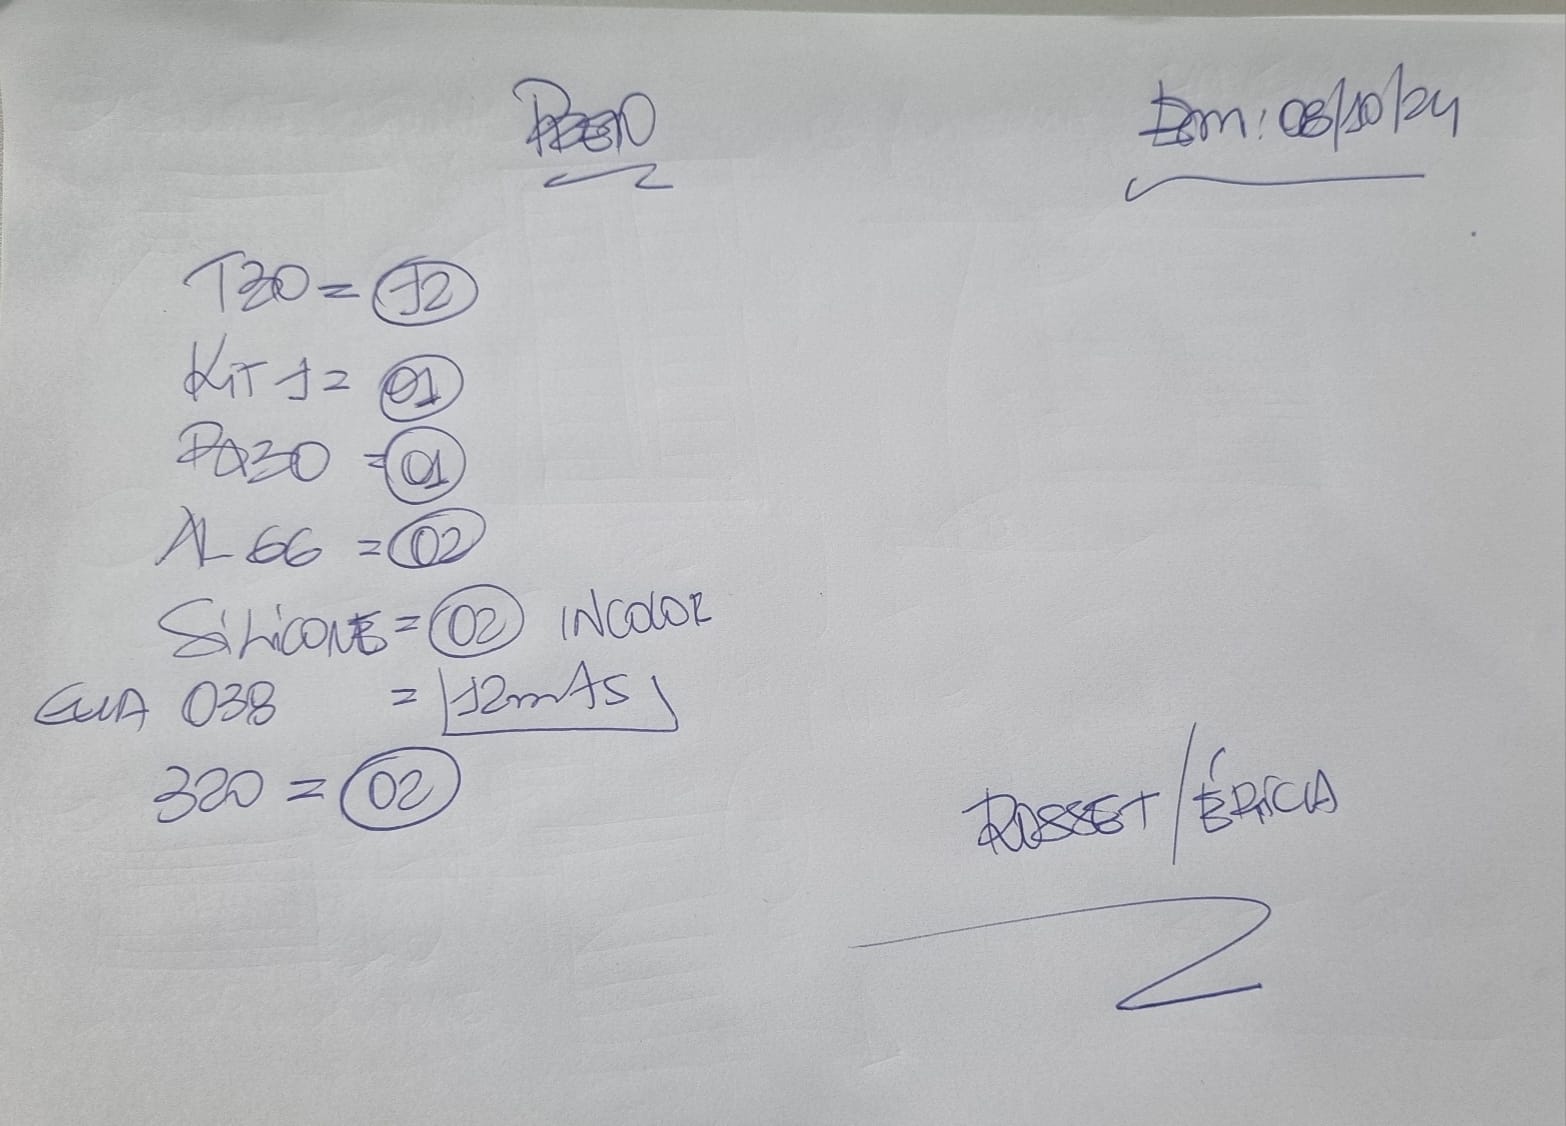 Em: 08/10/24
T30 = 12
KIT 1 = 01
PA30 = 01
AL 66 = 02
SILICONE = 02 INCOLOR
GUIA 038 = 12 mts
320 = 02
ROSSET / ÉRICA